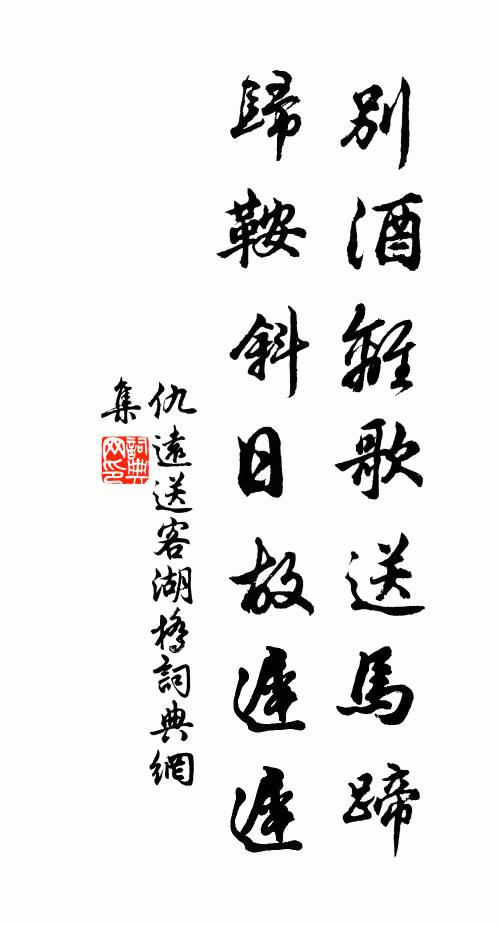 別酒離歌送馬蹄
歸鞍斜日故遲遲
仇遠送客湖橋詞典網
集
詞典
网印